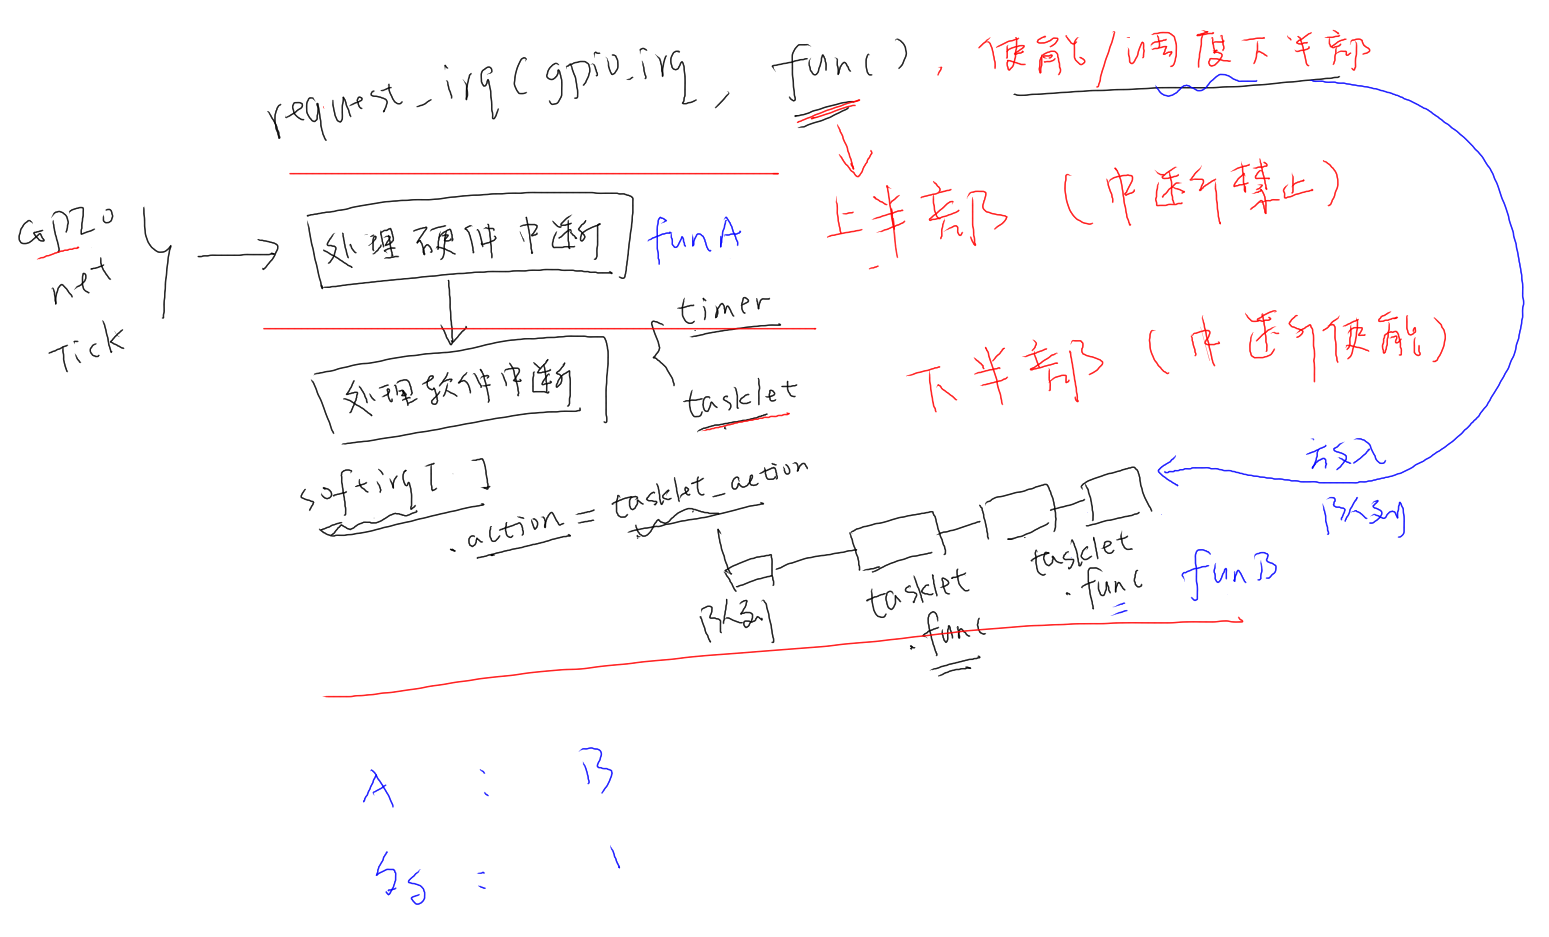 request_irq(gpio_irq, func(), 使能/调度下半部
上半部 (中断禁止)
GPIO
net
Tick
处理硬件中断
funA
timer
处理软件中断
tasklet
下半部 (中断使能)
softirq[ ]
.action = tasklet_action
放入
队列
队列
tasklet
.func
tasklet
.func
funB
A : B
多 :  1